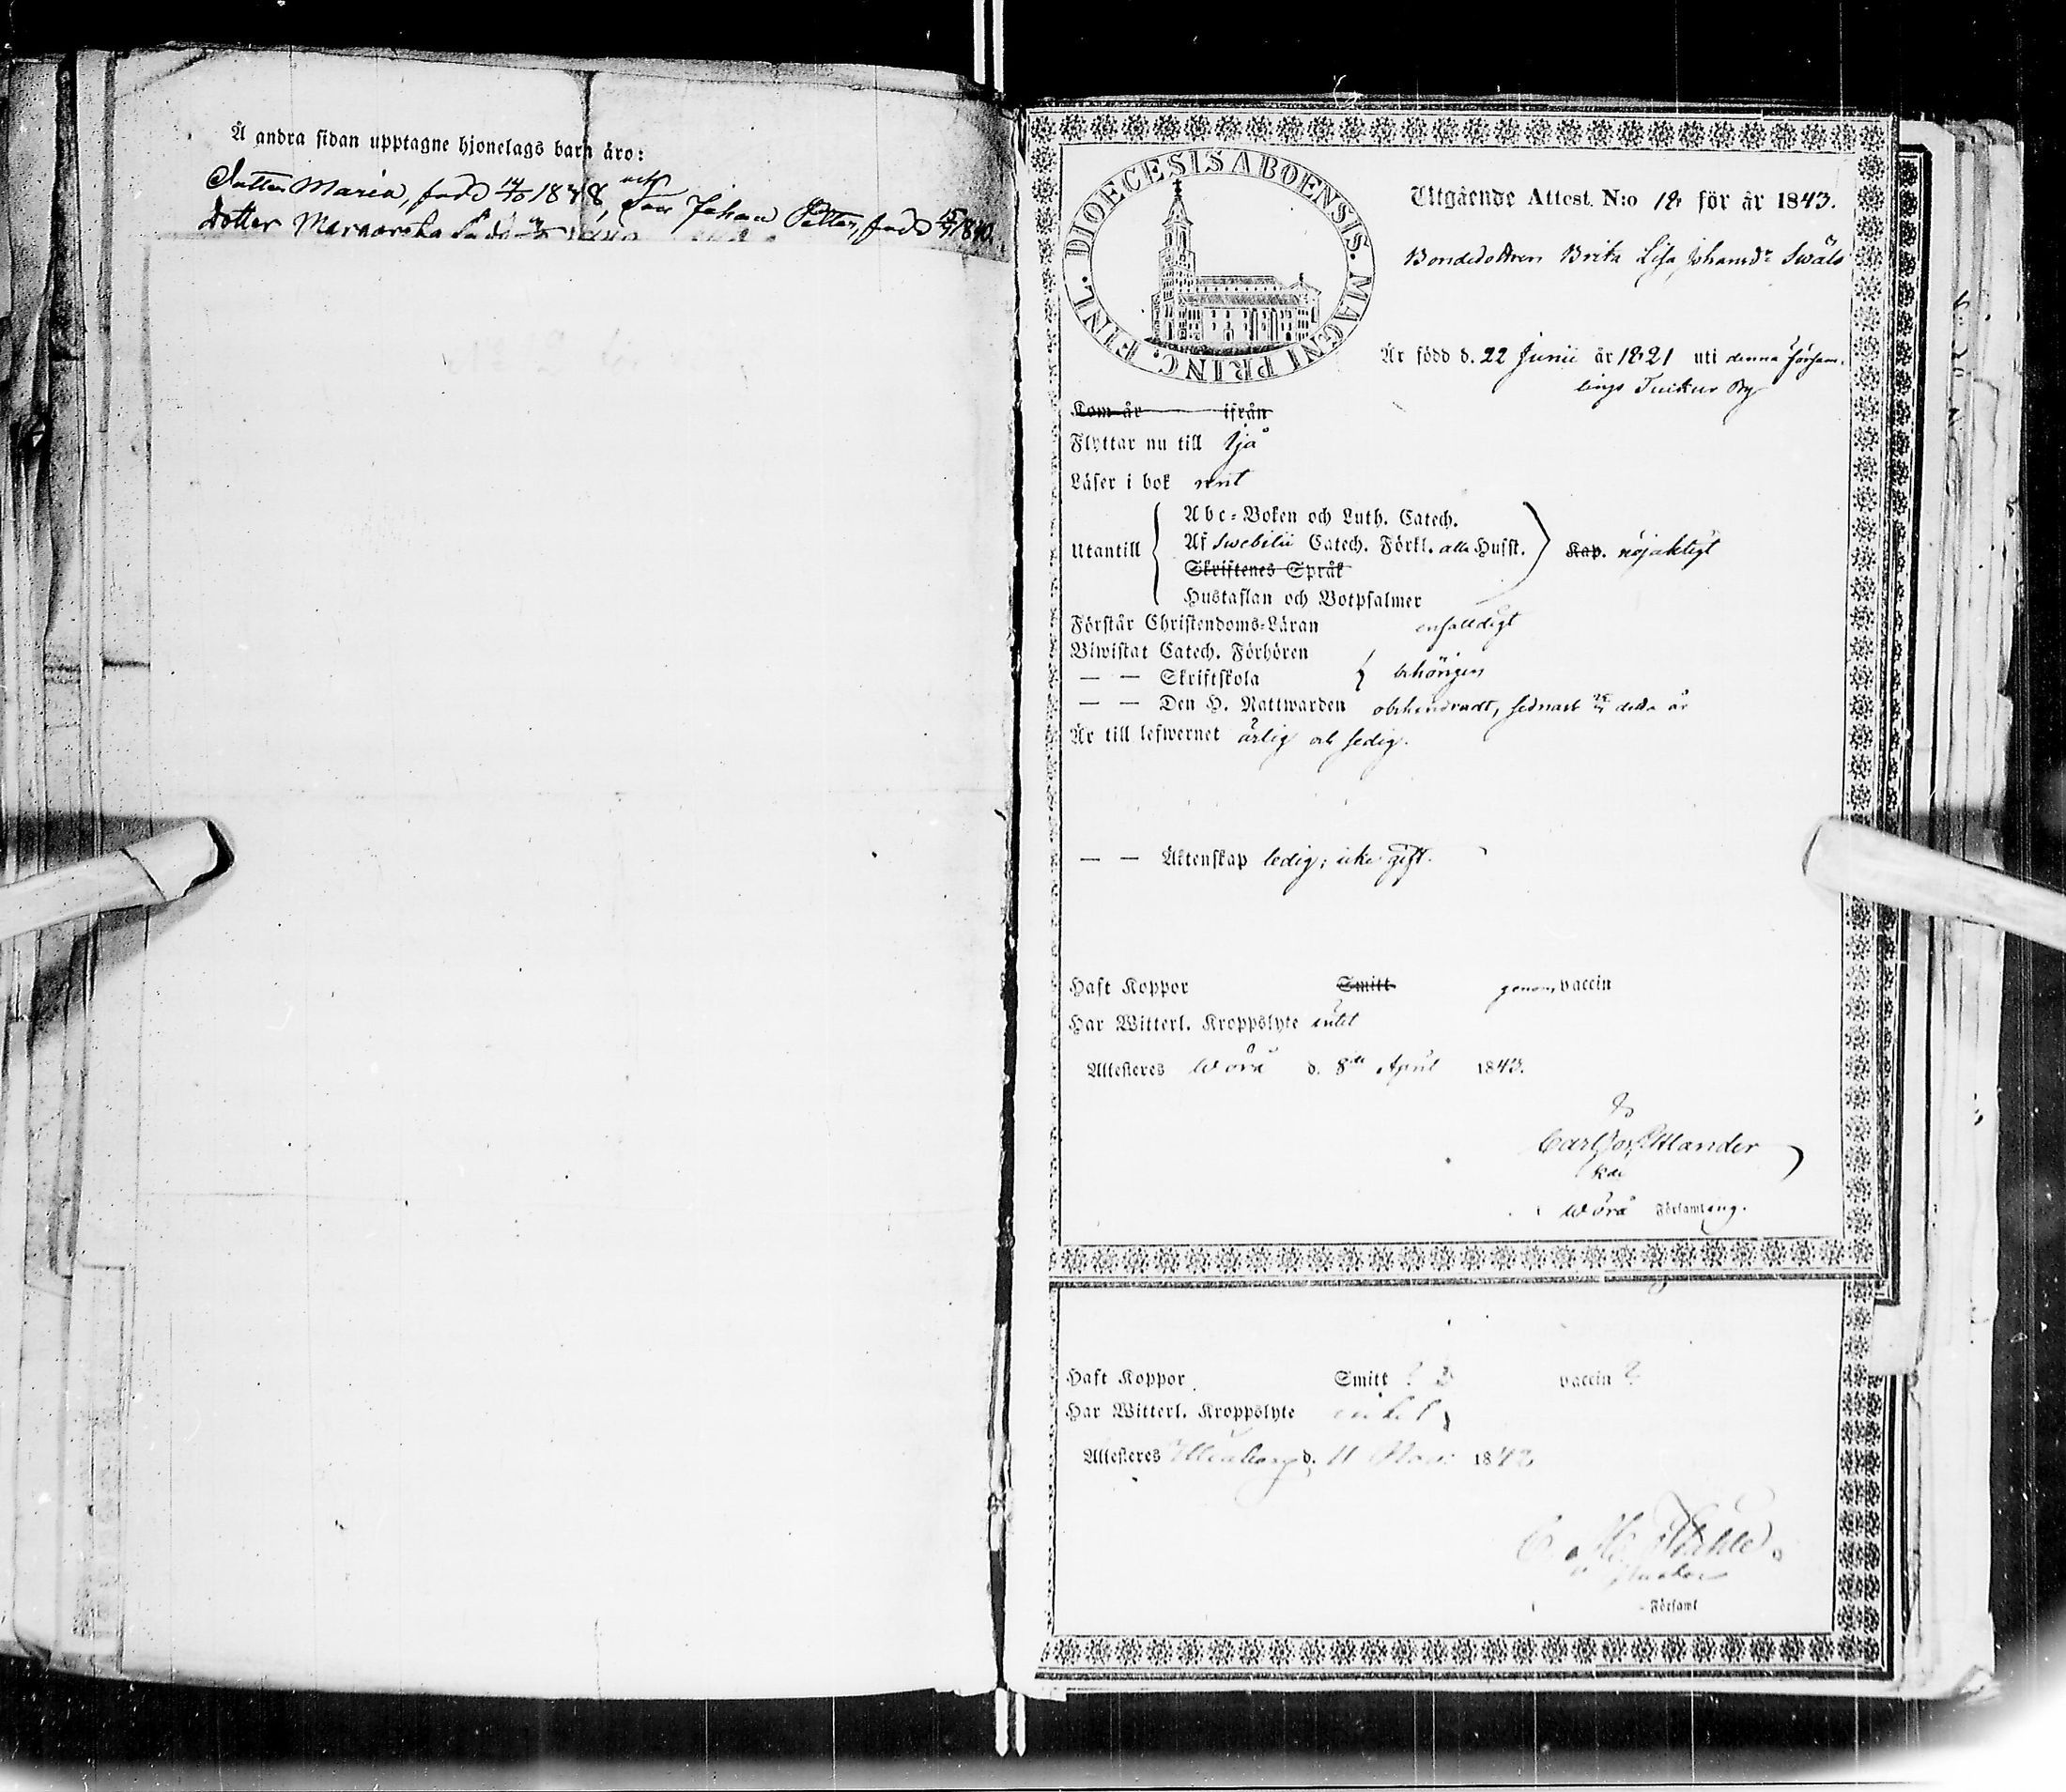 Å andra sidan upptagne hjonelags barn äro:
Dotter Maria, född 1838, och Son Johan Petter, född 1840,
dotter Margareta
DIOECESIS ABOENSIS. MAGNI PRINC. FINL.
Utgående Attest. N:o 18 för år 1843.
Bondedottren Brita Lisa Johansdr Swäls
Är född d. 22 Junii år 1821 uti denna Försam-
lings Tuckur By
Kom år ifrån
Flyttar nu till Ijå
Läser i bok rent
Abc-Boken och Luth. Catech.
Utantill Af Swebilii Catech. Förkl. alla Hufst. Kap. nöjaktigt
Skriftenes Språk
Hustaflan och Botpsalmer
Förstår Christendoms-Läran enfaldigt
Biwistat Catech. Förhören
— — Skriftskola behörigen
— — Den H. Nattwarden obehindradt, sednast detta år
Är till lefwernet ärlig och sedig.
— — Äktenskap ledig; icke gift.
Haft Koppor Smitt genom vaccin
Har Witterl. Kroppslyte intet
Attesteres Wörå d. 8de April 1843.
Wörå Församling.
Haft Koppor Smitt ? vaccin ?
Har Witterl. Kroppslyte intet
Attesteres d. 11 1842
Församl